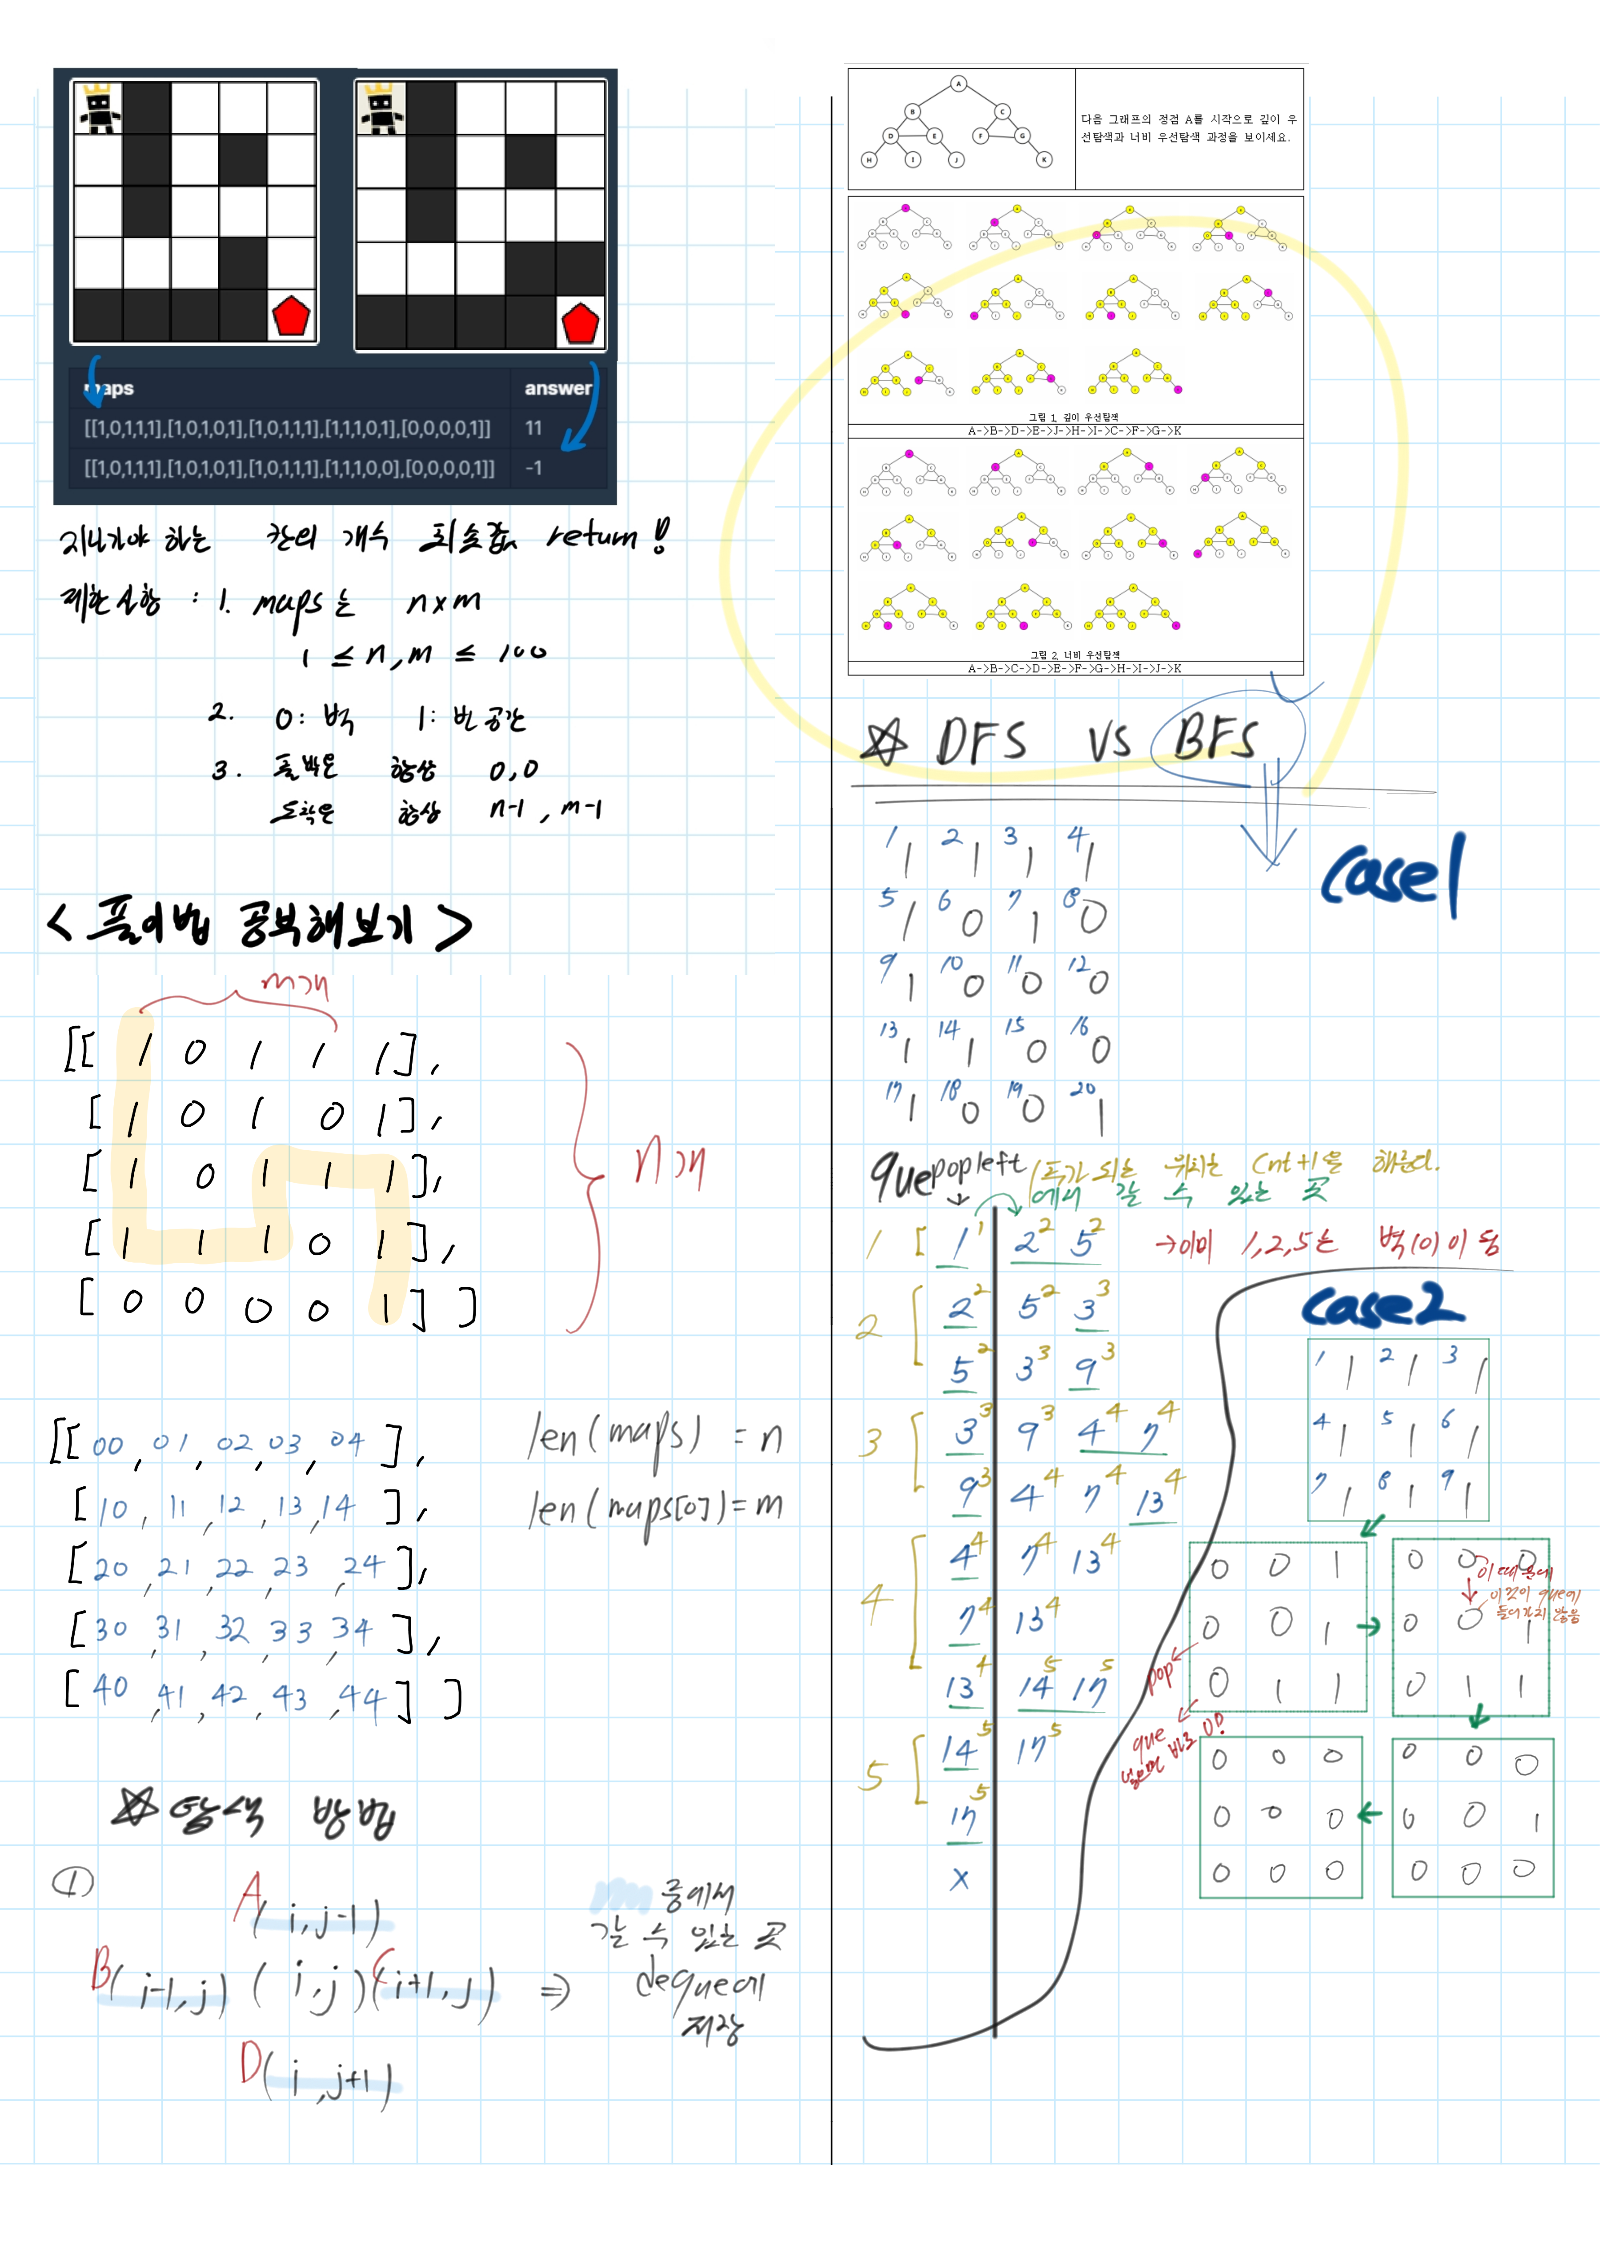 maps answer
[[1,0,1,1,1],[1,0,1,0,1],[1,0,1,1,1],[1,1,1,0,1],[0,0,0,0,1]] 11
[[1,0,1,1,1],[1,0,1,0,1],[1,0,1,1,1],[1,1,1,0,0],[0,0,0,0,1]] -1
지나가야 하는 칸의 개수 최솟값 return!
제한사항 : 1. maps는 n x m
1 ≤ n, m ≤ 100
2. 0: 벽 1: 빈 공간
3. 출발은 항상 0,0
도착은 항상 n-1, m-1
< 풀이법 공부해보기 >
m개
[[ 1 0 1 1 1],
[ 1 0 1 0 1],
[ 1 0 1 1 1],
[ 1 1 1 0 1],
[ 0 0 0 0 1] ]
n개
[[ 00, 01, 02, 03, 04 ],
[ 10, 11, 12, 13, 14 ],
[ 20, 21, 22, 23, 24 ],
[ 30, 31, 32, 33, 34 ],
[ 40, 41, 42, 43, 44 ] ]
len(maps) = n
len(maps[0]) = m
☆ 탐색 방법
①
A(i, j-1)
B(i-1, j) (i, j) C(i+1, j) ⇒
D(i, j+1)
중에서
갈 수 있는 곳
deque에
저장
A
B C
D E F G
H I J K
다음 그래프의 정점 A를 시작으로 깊이 우
선탐색과 너비 우선탐색 과정을 보이세요.
그림 1. 깊이 우선탐색
A->B->D->E->J->H->I->C->F->G->K
그림 2. 너비 우선탐색
A->B->C->D->E->F->G->H->I->J->K
☆ DFS VS BFS
case1
1 1 2 1 3 1 4 1
5 1 6 0 7 1 8 0
9 1 10 0 11 0 12 0
13 1 14 1 15 0 16 0
17 1 18 0 19 0 20 1
que popleft
추가 되는 위치는 cnt+1을 해준다.
에서 갈 수 있는 곳
1 [ 1¹ 2² 5² →이미 1,2,5는 벽(0)이 됨
2 [ 2² 5² 3³
5² 3³ 9³
3 [ 3³ 9³ 4⁴ 7⁴
9³ 4⁴ 7⁴ 13⁴
4 [ 4⁴ 7⁴ 13⁴
7⁴ 13⁴
13⁴ 14⁵ 17⁵
5 [ 14⁵ 17⁵
17⁵
x
case2
1 1 2 1 3 1
4 1 5 1 6 1
7 1 8 1 9 1
0 0 1
0 0 1
0 1 1
pop
que
넣으면 바로 0!
0 0 0
0 0 1
0 1 1
이 때문에
이것이 que에
들어가지 않음
0 0 0
0 0 1
0 0 0
0 0 0
0 0 0
0 0 0